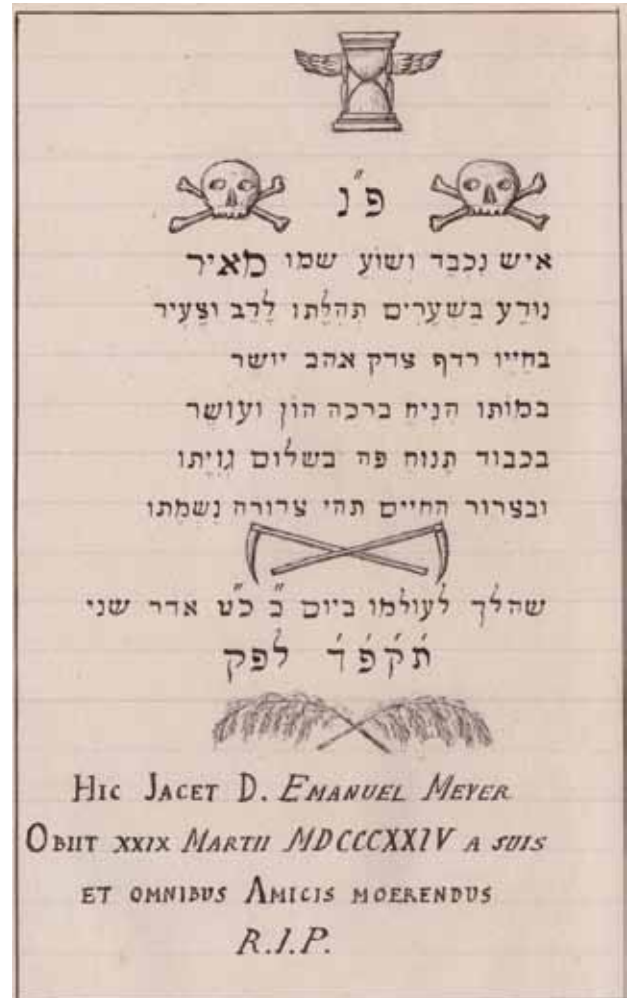 פ״נ
איש נִכְבַּד וְשׁוֹעַ שמו מאיר
נוֹדַע בַּשְׁעָרִים תְּהִלָּתוֹ לָרַב וצָעִיר
בחייו רדף צדק אהב יושר
במותו הניח ברכה הוֹן ועושר
בכבוד תָנוּחַ פה בשלום גְוִיָתוֹ
ובצרור החיים תהי צרורה נִשְׁמָתוֹ
שהלך לעולמו ביום ב״ כ״ט אדר שני
תׄקׄפׄדׄ לפק
HIC JACET D. EMANUEL MEYER
OBIIT XXIX MARTII MDCCCXXIV A SUIS
ET OMNIBVS AMICIS MOERENDVS
R.I.P.